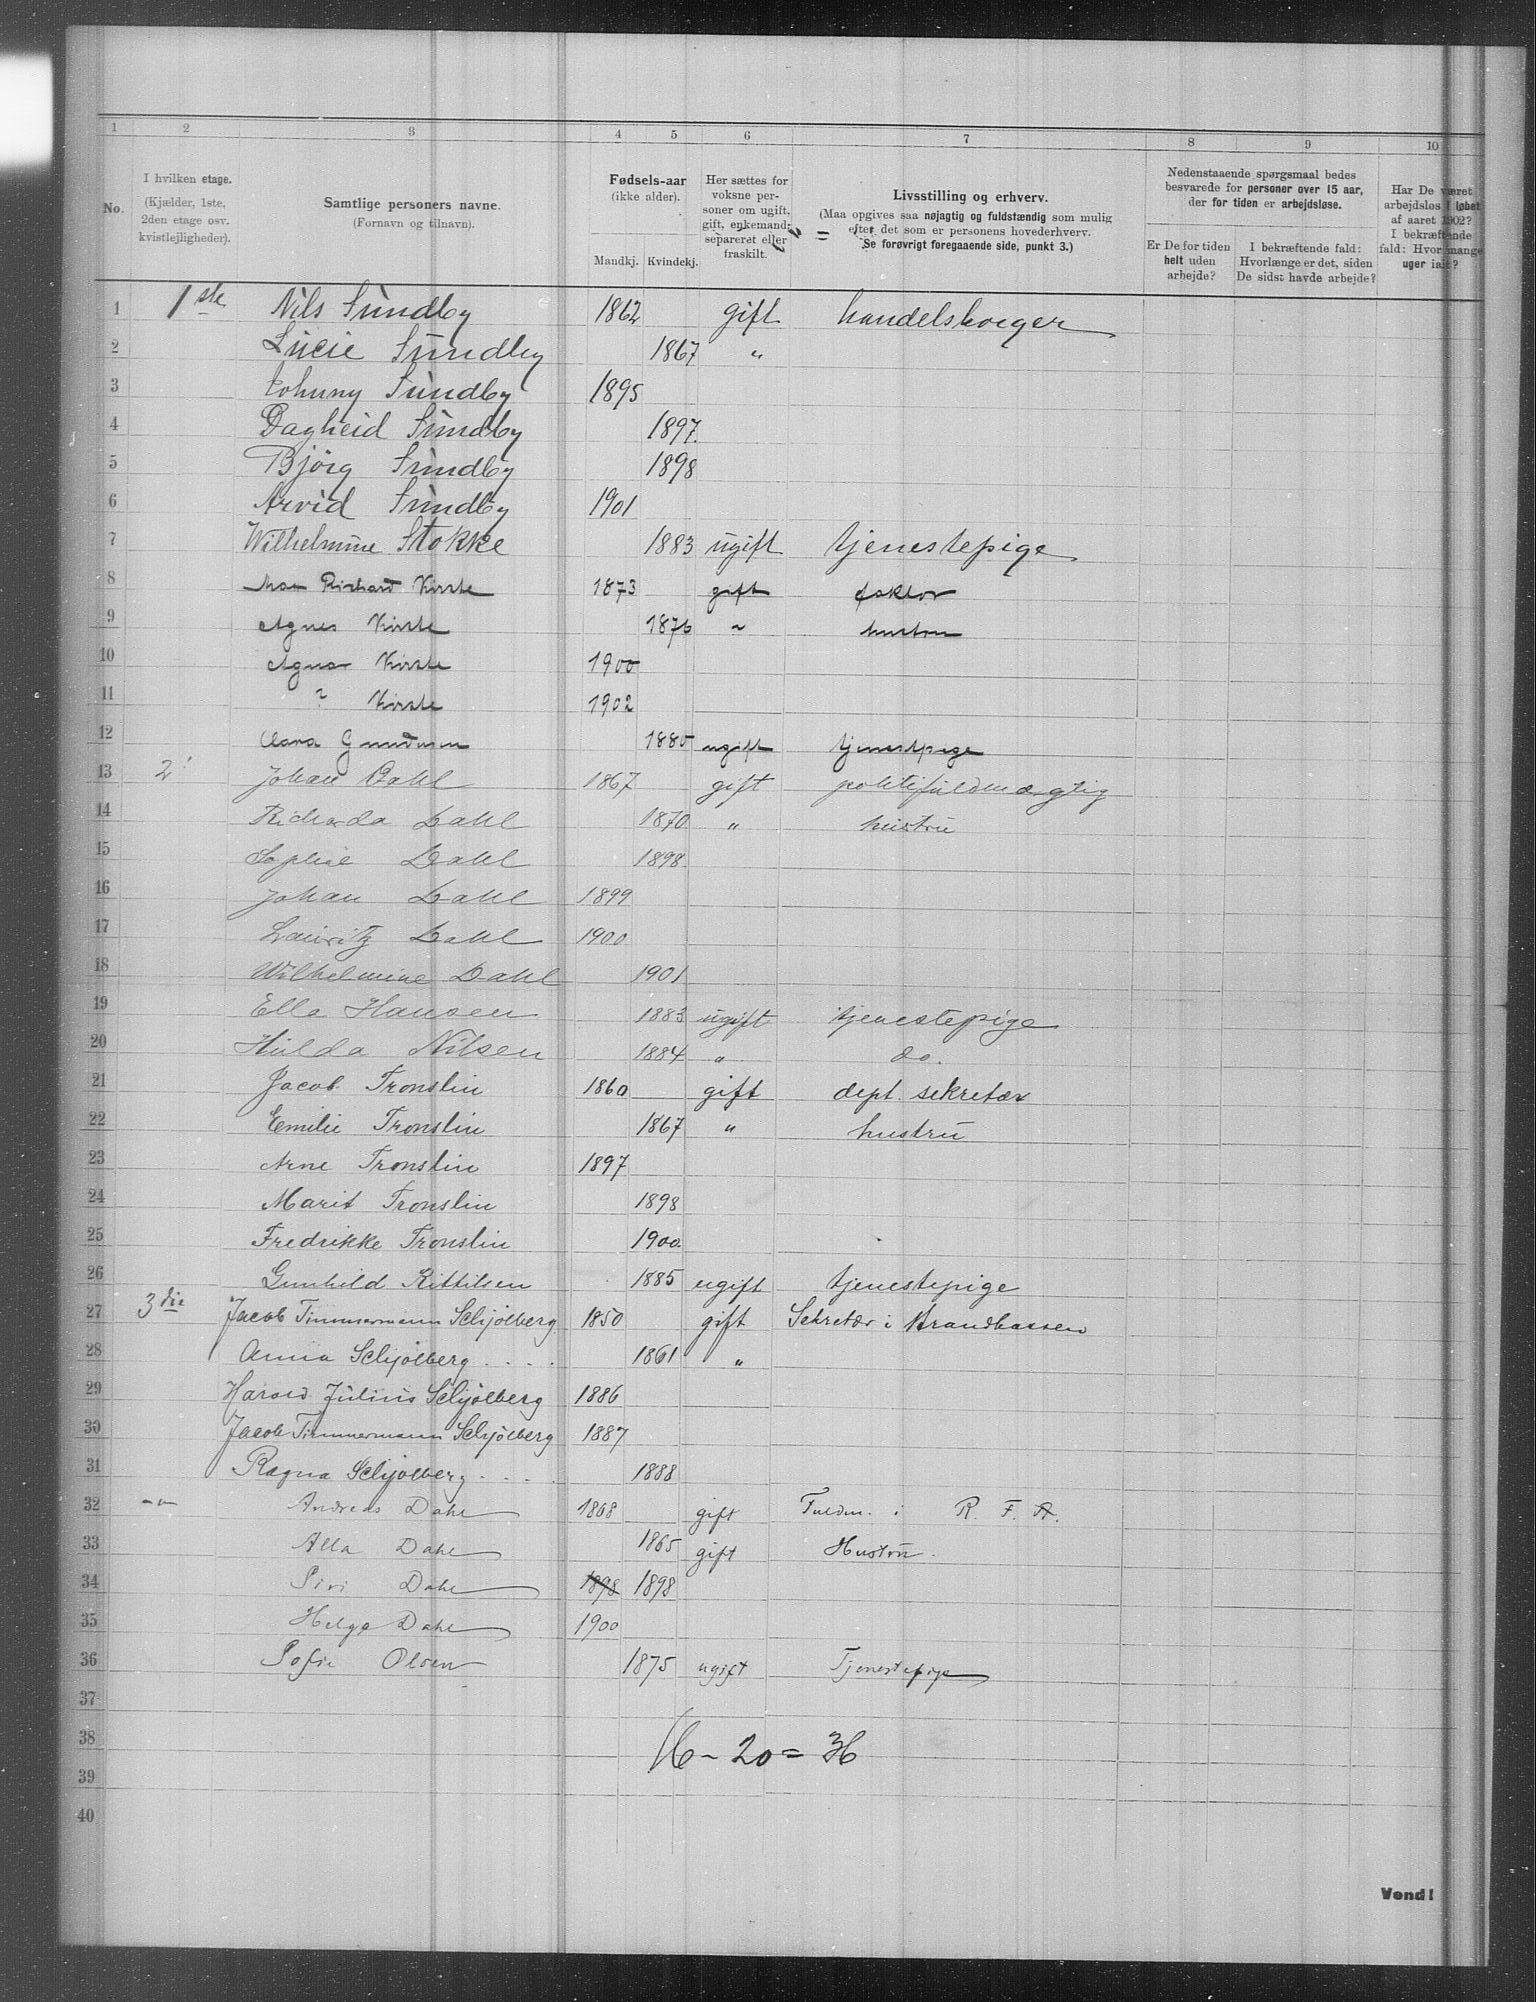 1 2 3 4 5 6 7 8 9 10
No.
I hvilken etage.
(Kjælder, 1ste,
2den etage osv.
kvistlejligheder).
Samtlige personers navne.
(Fornavn og tilnavn).
Fødsels-aar
(ikke alder).
Mandkj. Kvindekj.
Her sættes for
voksne per-
soner om ugift,
gift, enkemand,
separeret eller
fraskilt.
Livsstilling og erhverv.
(Maa opgives saa nøjagtig og fuldstændig som mulig
efter det som er personens hovederhverv.
Se forøvrigt foregaaende side, punkt 3.)
Nedenstaaende spørgsmaal bedes
besvarede for personer over 15 aar,
der for tiden er arbejdsløse.
Er De for tiden
helt uden
arbejde?
I bekræftende fald:
Hvorlænge er det, siden
De sidst havde arbejde?
Har De været
arbejdsløs i løbet
af aaret 1902?
I bekræftende
fald: Hvor mange
uger ialt?
1 1ste Nils Sundby 1862 gift handelsborger
2 Lucie Sundby 1867 "
3 Johnny Sundby 1895
4 Dagheid Sundby 1897
5 Bjørg Sundby 1898
6 Arvid Sundby 1901
7 Wilhelmine Stokke 1883 ugift tjenestepige
8 Max Richard Kirste 1873 gift faktor
9 Agnes Kirste 1876 " hustru
10 Agnar Kirste 1900
11 ? Kirste 1902
12 Clara Gundersen 1880 ugift tjenestpige
13 2' Johan Dahl 1867 gift politifuldmægtig
14 Richarda Dahl 1870 " hustru
15 Sophie Dahl 1898
16 Johan Dahl 1899
17 Lauritz Dahl 1900
18 Wilhelmine Dahl 1901
19 Ella Hansen 1883 ugift tjenestepige
20 Hulda Nilsen 1884 " do.
21 Jacob Tronslin 1860 gift dept. sekretær
22 Emilie Tronslin 1867 " hustru
23 Arne Tronslin 1897
24 Marit Tronslin 1898
25 Fredrikke Tronslin 1900
26 Gunhild Kittilsen 1885 ugift tjenestepige
27 3die Jacob Timmermann Schjølberg 1850 gift Sekretær i Brandkassen
28 Anna Schjølberg . . . . 1861 "
29 Harold Julius Schjølberg 1886
30 Jacob Timmermann Schjølberg 1887
31 Ragna Schjølberg . . . . 1888
32 -"- Andreas Dahl 1868 gift Fuldm. i R. F. A.
33 Alla Dahl 1865 gift Hustru.
34 Siri Dahl 1898 1898
35 Helge Dahl 1900
36 Sofie Olsen 1875 ugift Tjenestepige
37
38 16 - 20 = 36
39
40
Vend!